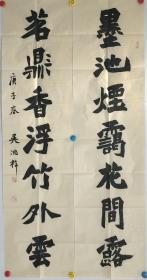 墨池煙靄花間露
茗鼎香浮竹外雲
庚子春 吳